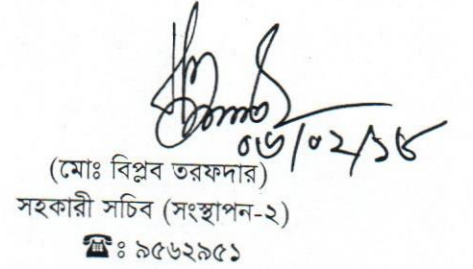 ০৬/০২/১৮
(মোঃ বিপ্লব তরফদার)
সহকারী সচিব (সংস্থাপন-২)
☎ঃ ৯৫৬২৯৫১